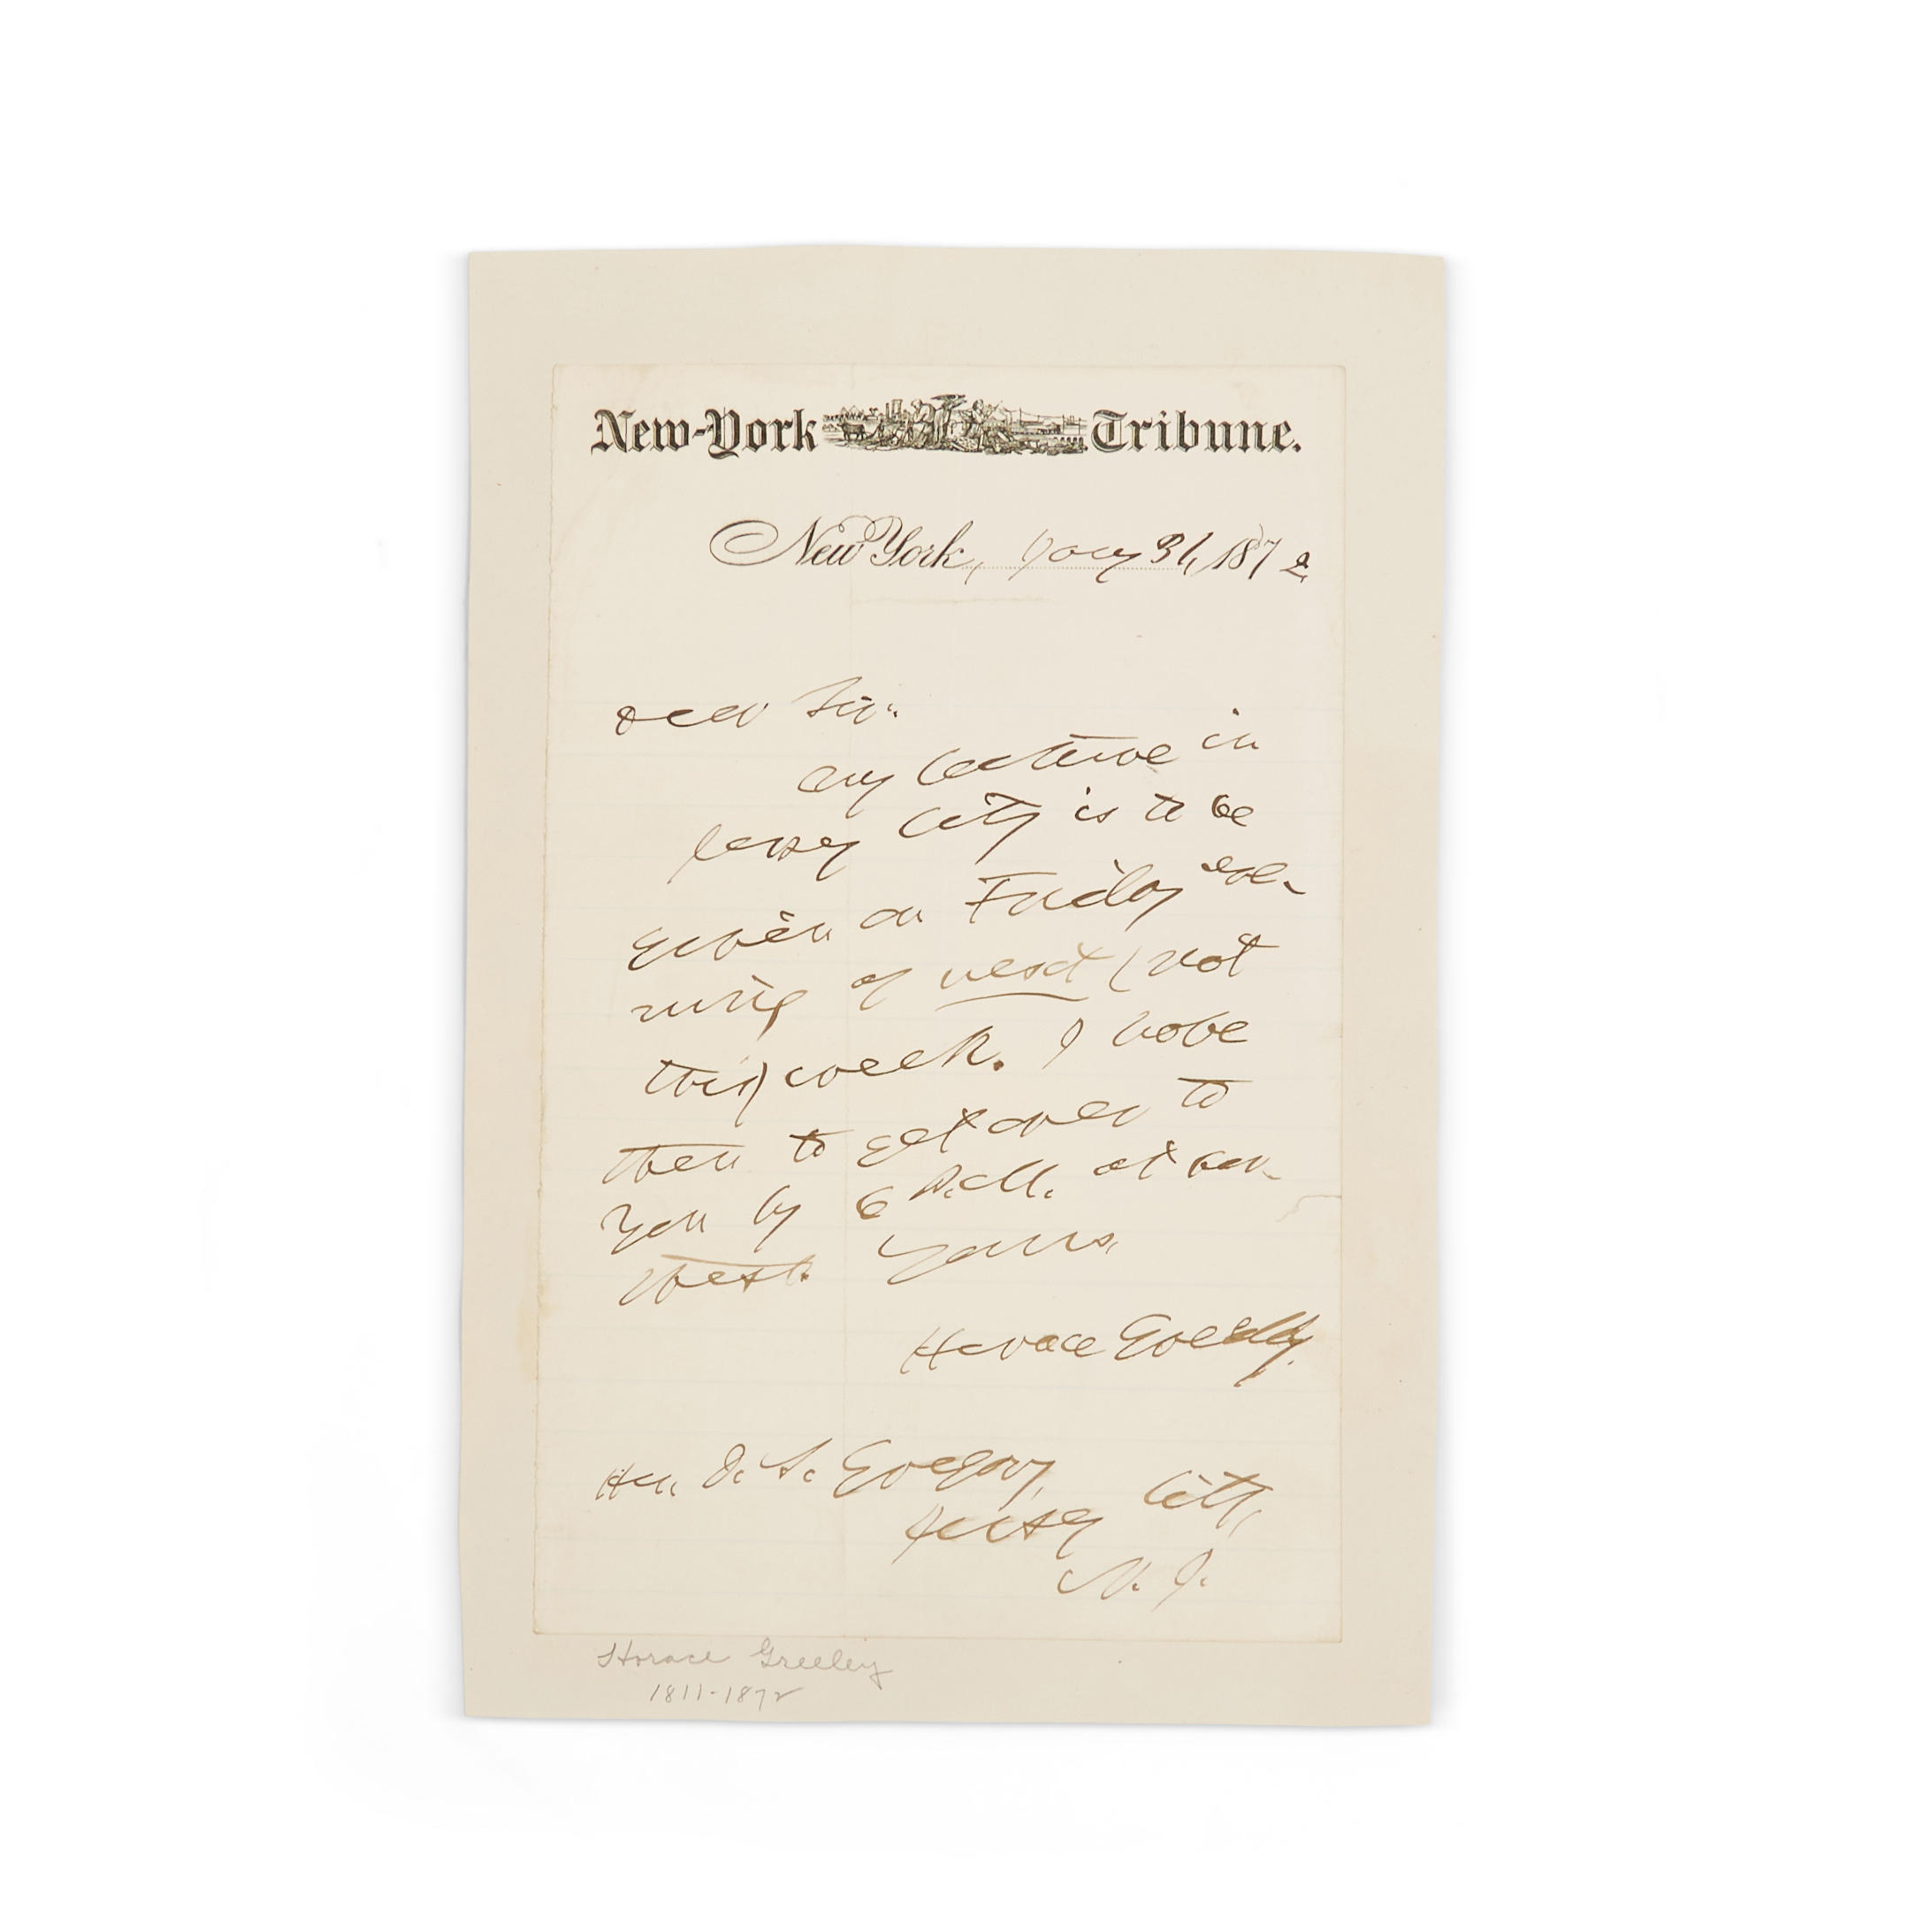 New-York Tribune.
New York, Jany 31, 1872
Dear Sir:
My lecture in
Jersey City is to be
given on Friday eve-
ning of next (not
this) week. I hope
then to get over to
you by 6 P.M. at far-
thest. Yours,
Horace Greeley.
Hon. D. S. Gregory,
Jersey City,
N. J.
Horace Greeley
1811-1872